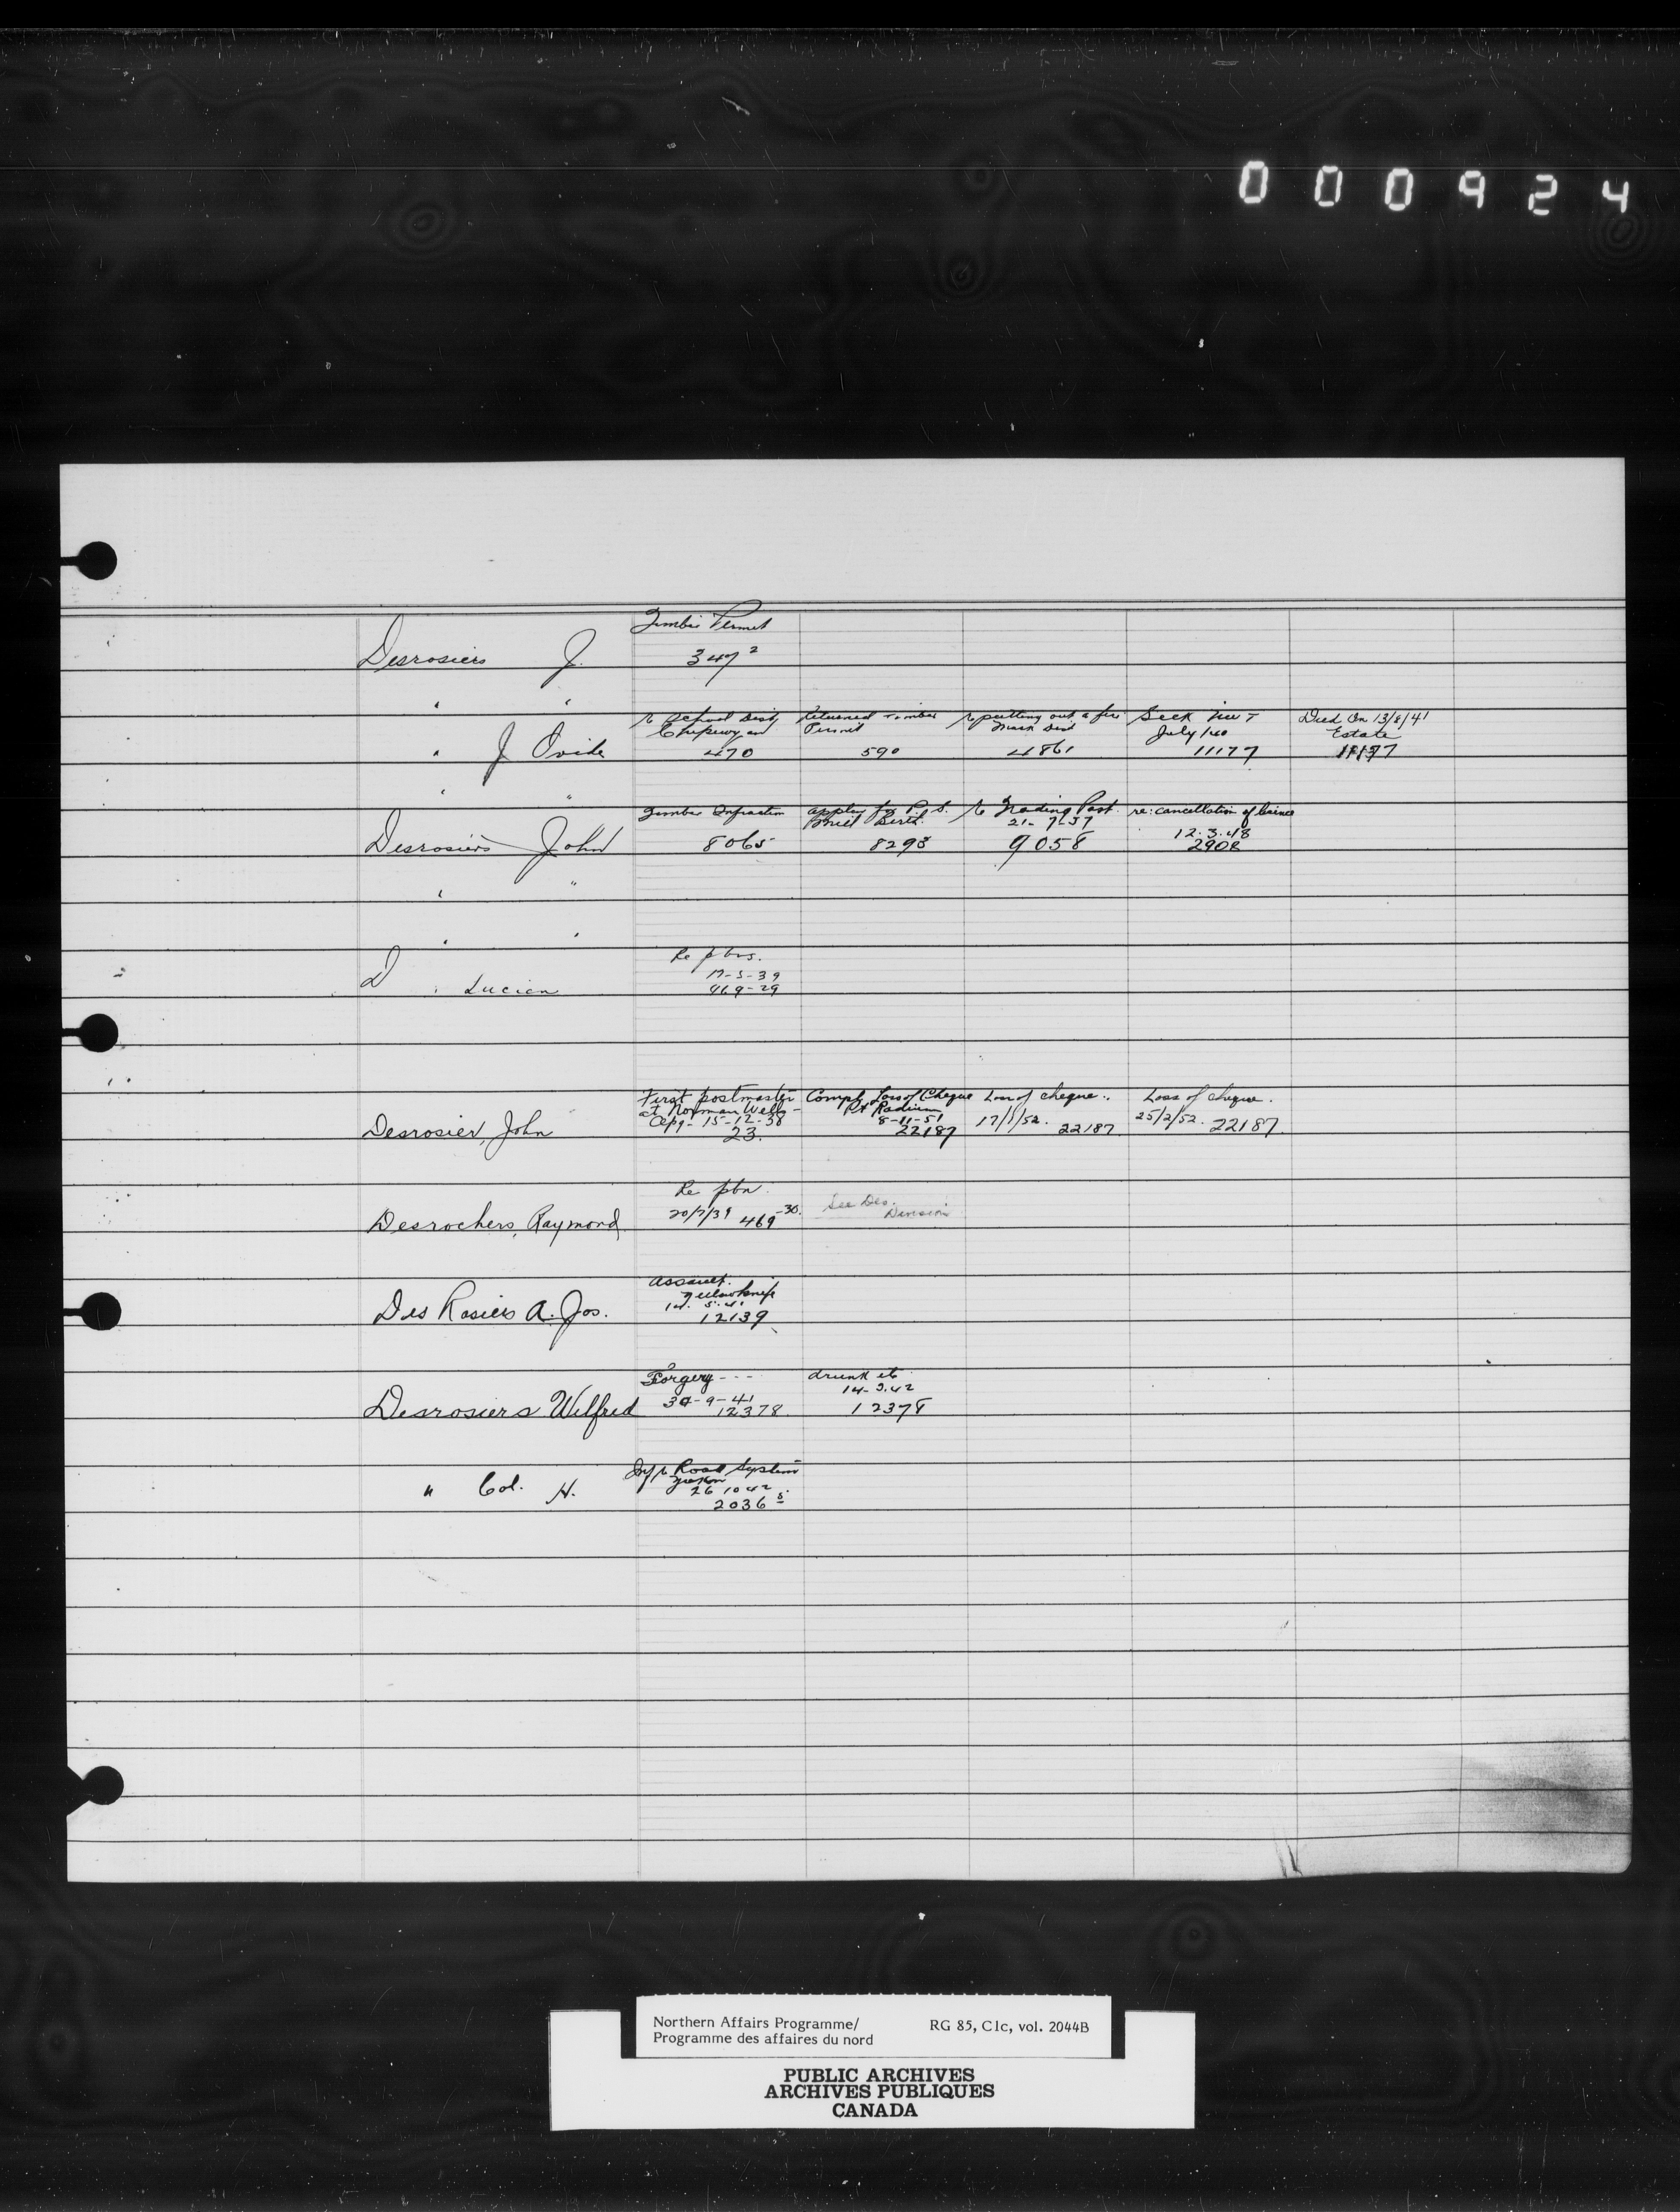 000924
Timber Permit
Desrosiers J. 347²
" "
re School Dist Returned Timber re putting out a fire Died On 13/8/41
Chipewyan Permit July /40 Estate
" J Ovide 470 590 4861 11177 11177
" "
Timber Infraction re Trading Post re: cancellation of licence
21-7-37 12.3.48
Desrosiers John 8065 8293 9058 2908
" "
" "
Re pbrs.
17-5-39
D " Lucien 469-29
First postmaster Compl Loss of Cheque Loss of cheque.. Loss of cheque.
at Norman Wells - Pt Radium
15-12-38 8-11-51 17/1/52. 25/2/52.
Desrosier, John 23. 22187 22187 22187
Re pbn. See Des.
20/7/39 Division
Desrochers, Raymond 469-30.
Assault.
Yellowknife
14. 5. 41
Des Rosiers A. Jos. 12139
Forgery --- drunk etc
30-9-41 14-3.42
Desrosiers Wilfred 12378 12378
Road System
Yukon
26 10 42
" Col. H. 2036 5
Northern Affairs Programme/ RG 85, C1c, vol. 2044B
Programme des affaires du nord
PUBLIC ARCHIVES
ARCHIVES PUBLIQUES
CANADA